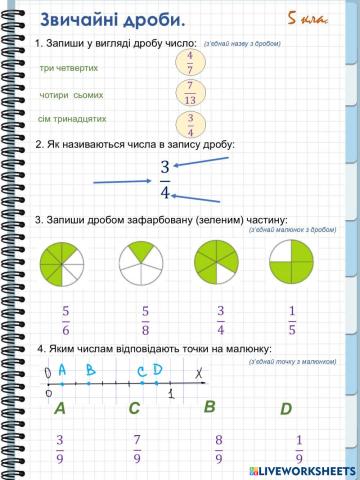 Звичайні дроби.
5 кла.
1. Запиши у вигляді дробу число: (з'єднай назву з дробом)
три четвертих
4/7
чотири сьомих
7/13
сім тринадцятих
3/4
2. Як називаються числа в запису дробу:
3/4
3. Запиши дробом зафарбовану (зеленим) частину:
(з'єднай малюнок з дробом)
5/6 5/8 3/4 1/5
4. Яким числам відповідають точки на малюнку:
(з'єднай точку з малюнком)
O A B C D X
0 1
A C B D
3/9 7/9 8/9 1/9
LIVEWORKSHEETS